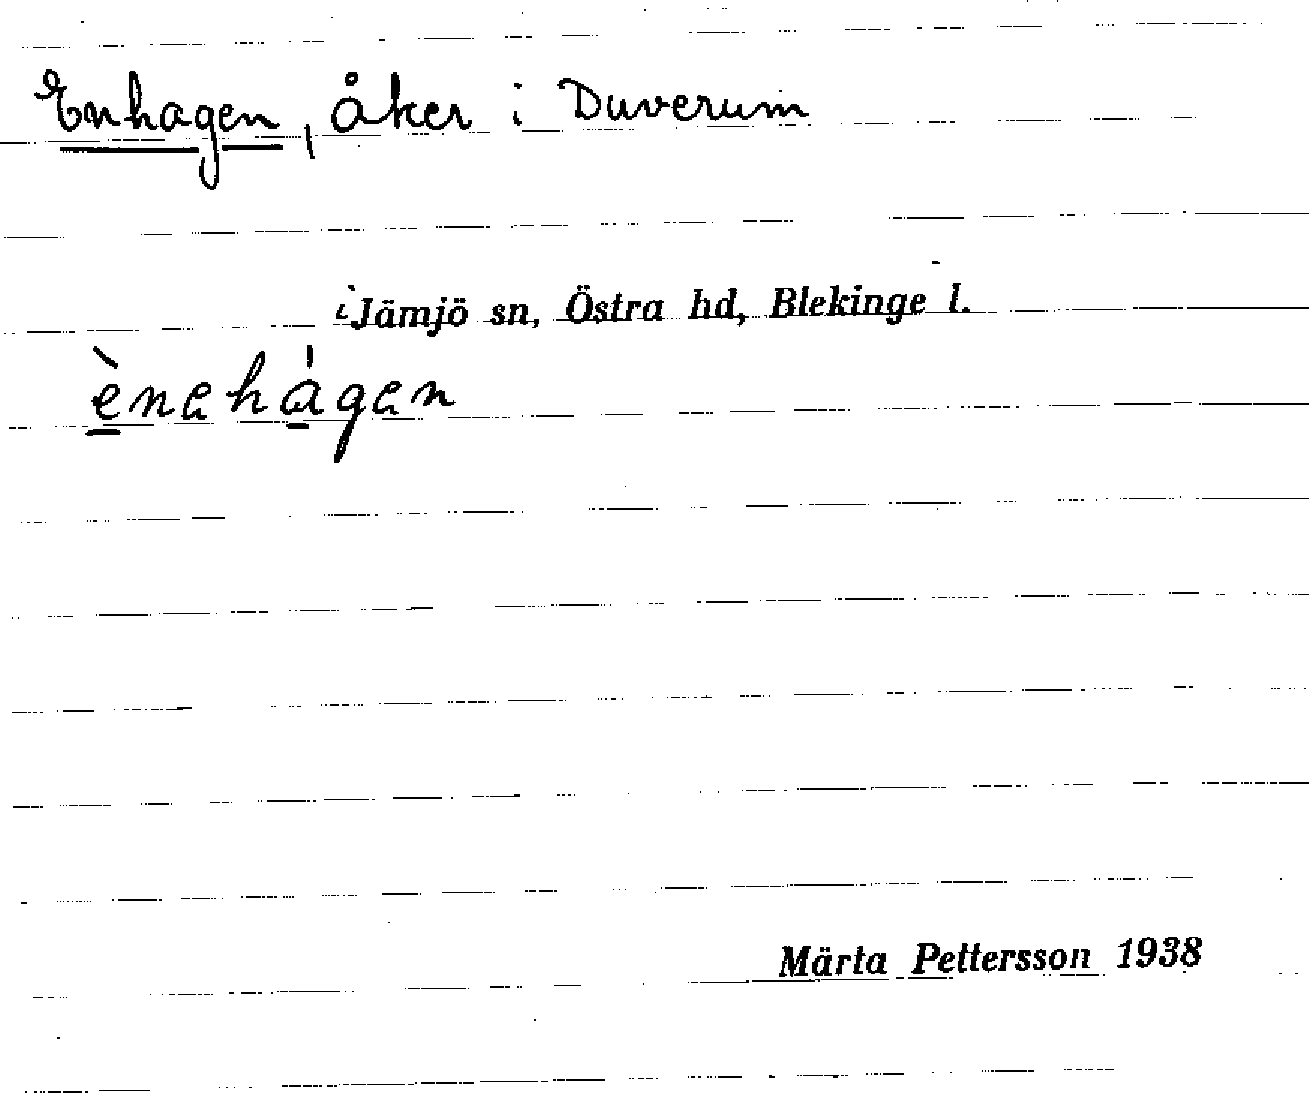 Enhagen, åker i Duverum
i Jämjö sn, Östra hd, Blekinge l.
ènehágen
Märta Pettersson 1938